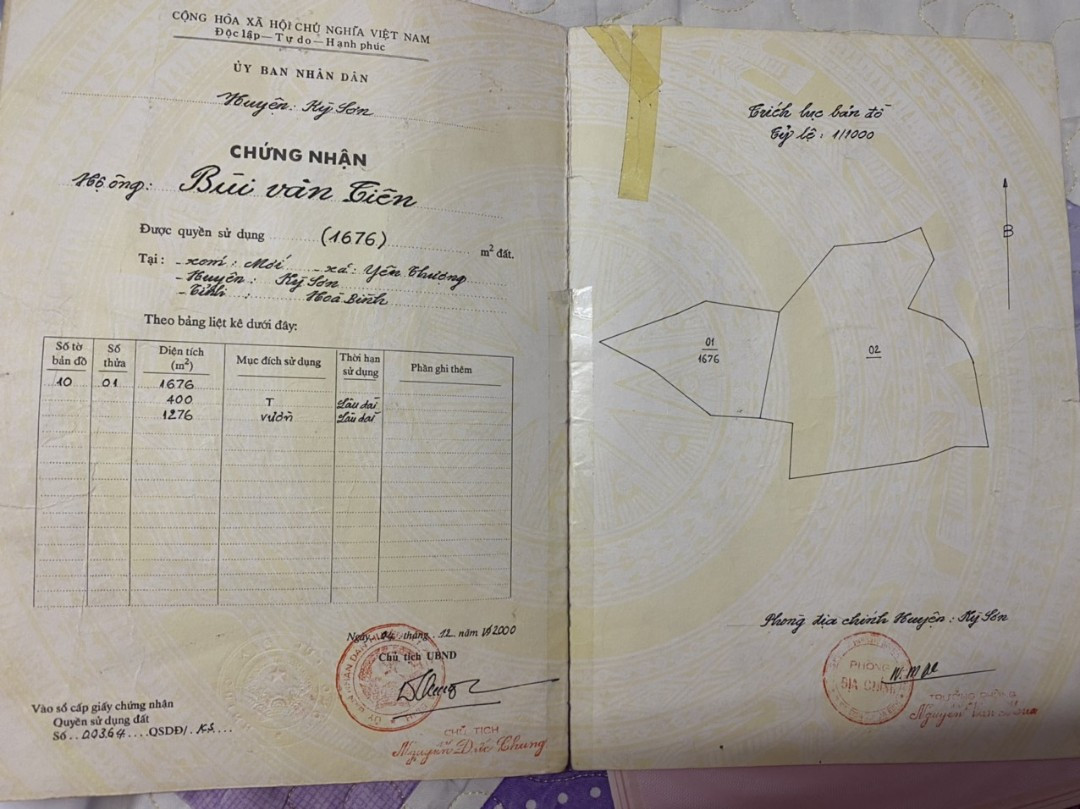 CỘNG HÒA XÃ HỘI CHỦ NGHĨA VIỆT NAM
Độc lập — Tự do — Hạnh phúc
ỦY BAN NHÂN DÂN
Huyện: Kỳ Sơn
CHỨNG NHẬN
Hộ ông: Bùi văn Tiên
Được quyền sử dụng (1676) m² đất.
Tại: - xóm: Mới - xã: Yên Thượng
- Huyện: Kỳ Sơn
- Tỉnh: Hoà Bình
Theo bảng liệt kê dưới đây:
Số tờ bản đồ Số thửa Diện tích (m²) Mục đích sử dụng Thời hạn sử dụng Phần ghi thêm
10 01 1676
400 T Lâu dài
1276 vườn Lâu dài
Ngày 04 tháng 12 năm 2000
Chủ tịch UBND
CHỦ TỊCH
Nguyễn Đức Chung
Vào sổ cấp giấy chứng nhận
Quyền sử dụng đất
Số 00364 QSDĐ/ KS
Trích lục bản đồ
Tỷ lệ: 1/1000
B
01
1676
02
Phòng địa chính Huyện: Kỳ Sơn
PHÒNG
ĐỊA CHÍNH
TRƯỞNG PHÒNG
Nguyễn Văn